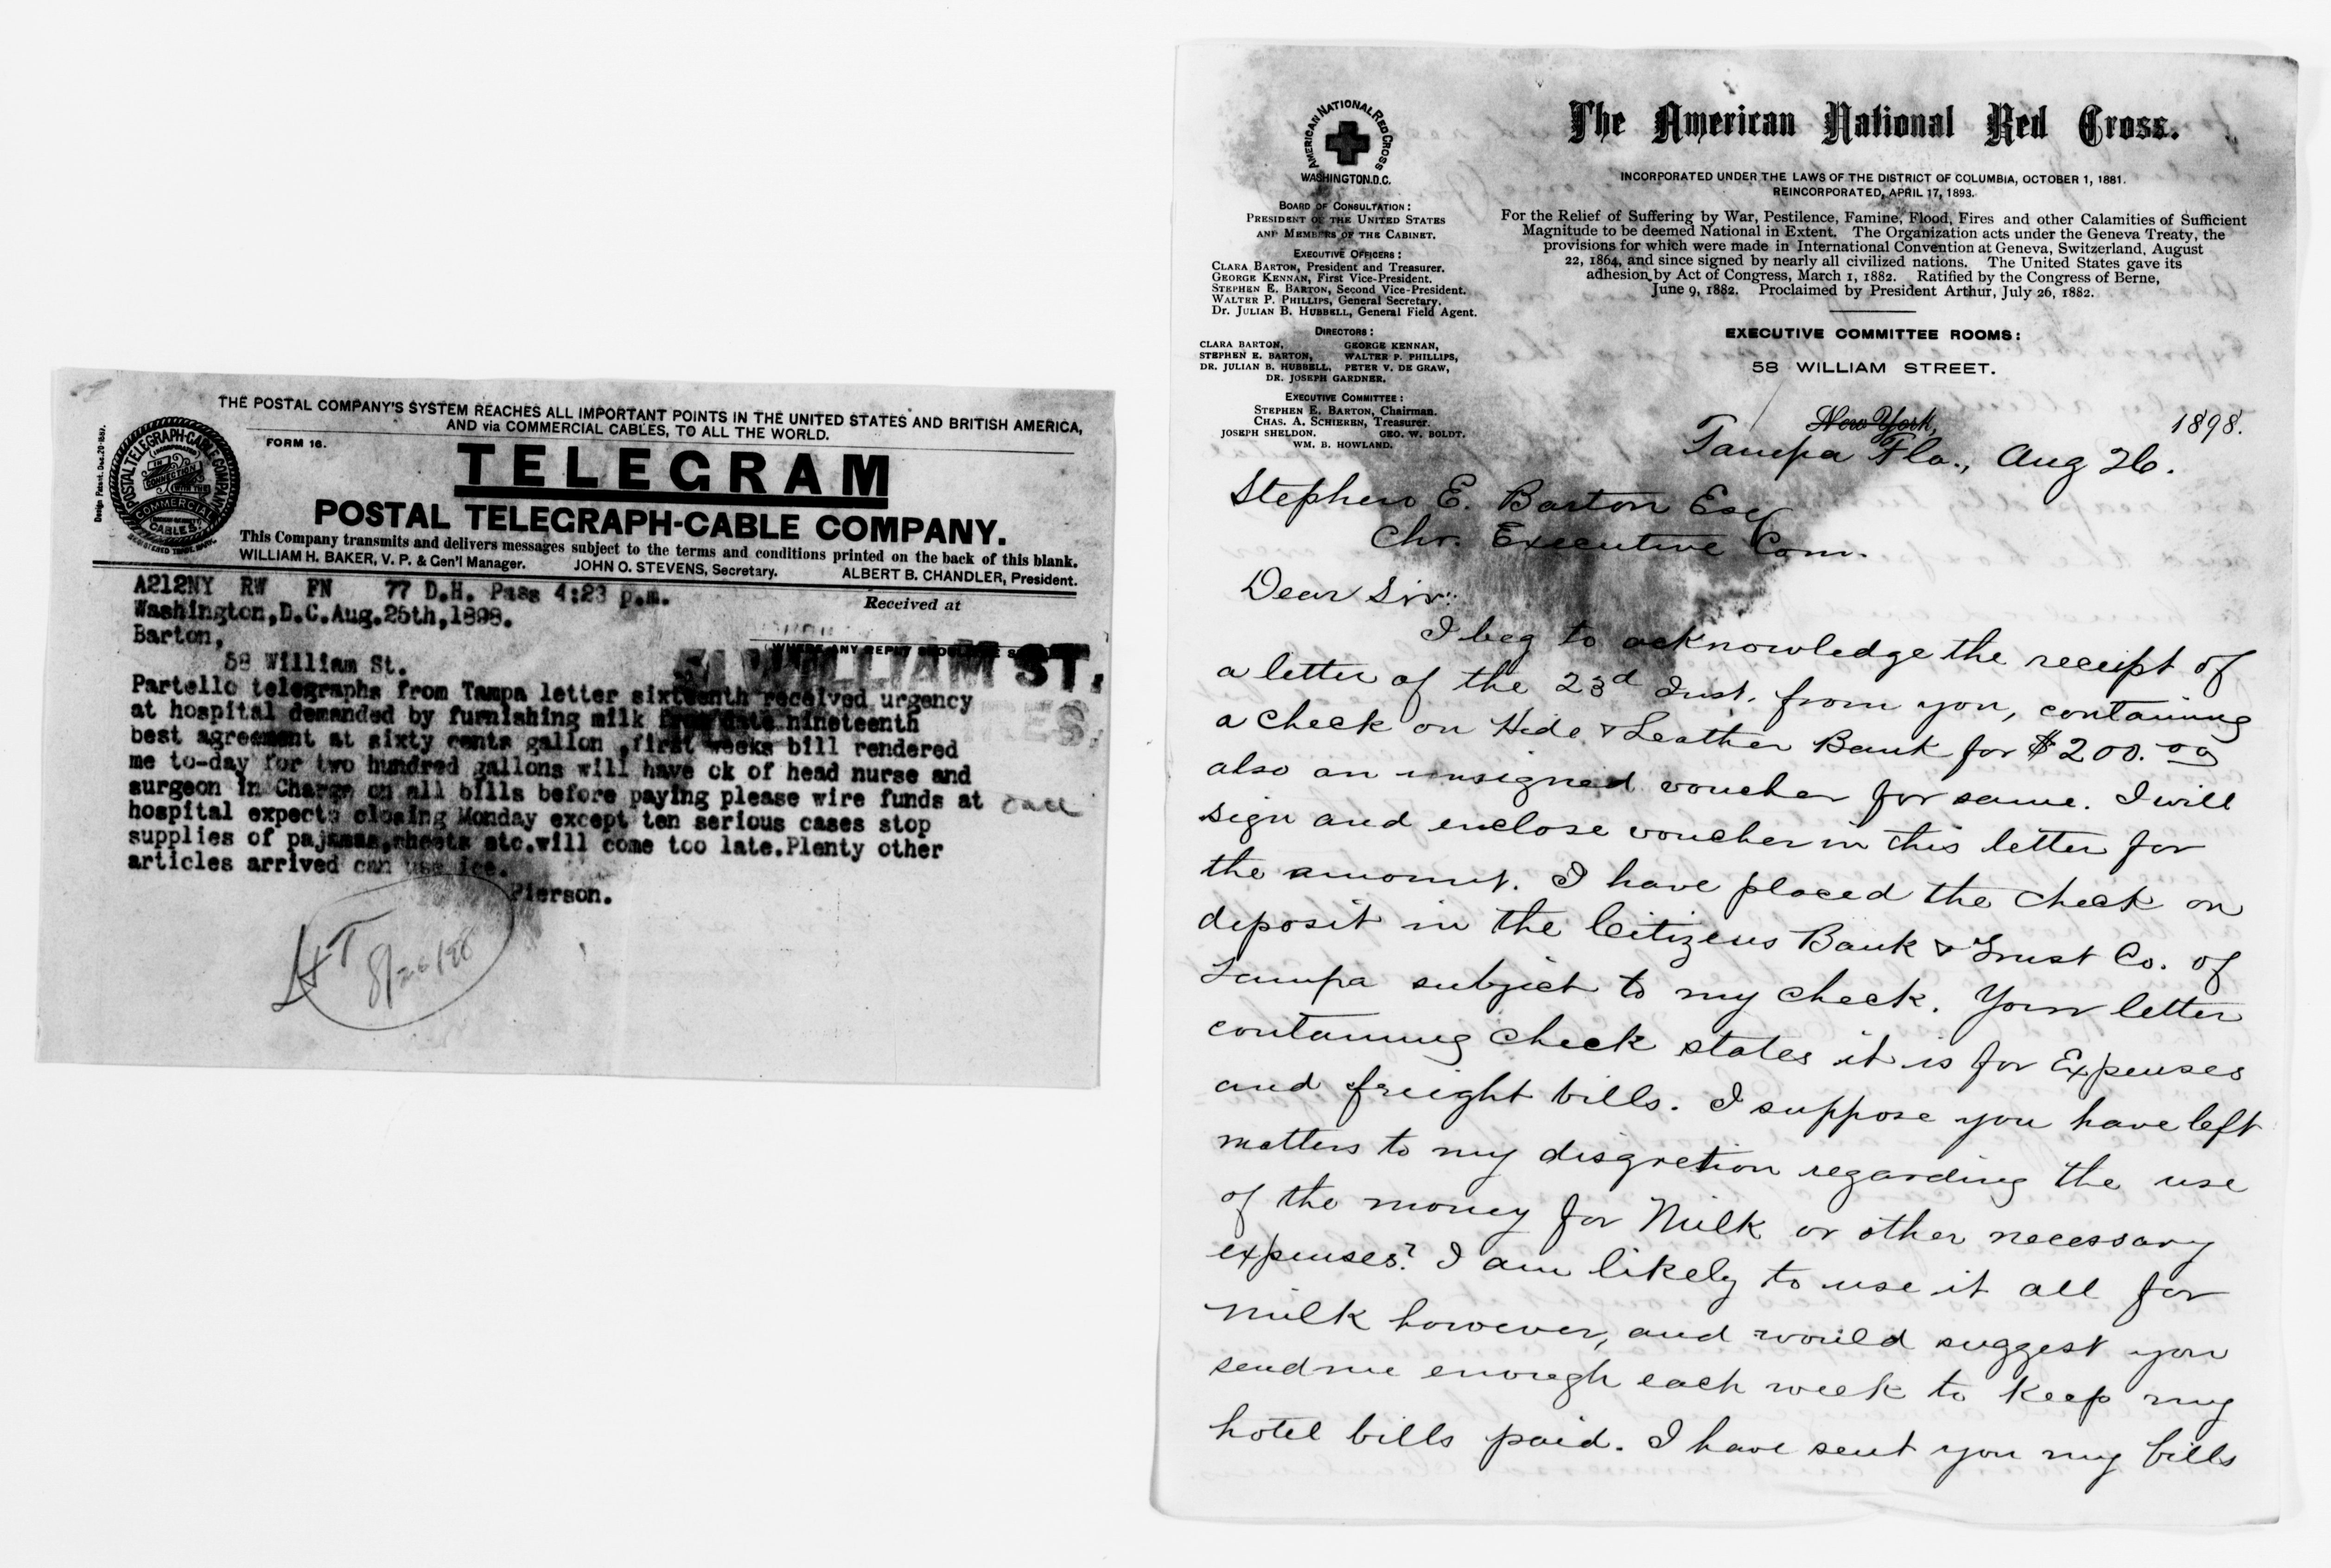 THE POSTAL COMPANY'S SYSTEM REACHES ALL IMPORTANT POINTS IN THE UNITED STATES AND BRITISH AMERICA,
AND via COMMERCIAL CABLES, TO ALL THE WORLD.
FORM 16.
Design Patent.
POSTAL TELEGRAPH-CABLE COMPANY
(INCORPORATED)
IN CONNECTION WITH THE
COMMERCIAL
CABLES.
REGISTERED TRADE MARK.
TELEGRAM
POSTAL TELEGRAPH-CABLE COMPANY.
This Company transmits and delivers messages subject to the terms and conditions printed on the back of this blank.
WILLIAM H. BAKER, V. P. & Gen'l Manager. JOHN O. STEVENS, Secretary. ALBERT B. CHANDLER, President.
A212NY RW FN 77 D.H. Pass 4:23 p.m.
Received at
Washington,D.C.Aug.25th,1898.
Barton,
58 William St.
WILLIAM ST.
Partello telegraphs from Tampa letter sixteenth received urgency
at hospital demanded by furnishing milk from date nineteenth
best agreement at sixty cents gallon ,first weeks bill rendered
me to-day for two hundred gallons will have ok of head nurse and
surgeon in Charge on all bills before paying please wire funds at
hospital expects closing Monday except ten serious cases stop
supplies of pajamas,sheets etc.will come too late.Plenty other
articles arrived can use ice.
Pierson.
8/26/98
AMERICAN NATIONAL RED CROSS
WASHINGTON.D.C.
The American National Red Cross.
INCORPORATED UNDER THE LAWS OF THE DISTRICT OF COLUMBIA, OCTOBER 1, 1881.
REINCORPORATED, APRIL 17, 1893.
For the Relief of Suffering by War, Pestilence, Famine, Flood, Fires and other Calamities of Sufficient
Magnitude to be deemed National in Extent. The Organization acts under the Geneva Treaty, the
provisions for which were made in International Convention at Geneva, Switzerland, August
22, 1864, and since signed by nearly all civilized nations. The United States gave its
adhesion by Act of Congress, March 1, 1882. Ratified by the Congress of Berne,
June 9, 1882. Proclaimed by President Arthur, July 26, 1882.
BOARD OF CONSULTATION:
PRESIDENT OF THE UNITED STATES
AND MEMBERS OF THE CABINET.
EXECUTIVE OFFICERS:
CLARA BARTON, President and Treasurer.
GEORGE KENNAN, First Vice-President.
STEPHEN E. BARTON, Second Vice-President.
WALTER P. PHILLIPS, General Secretary.
Dr. JULIAN B. HUBBELL, General Field Agent.
DIRECTORS:
CLARA BARTON, GEORGE KENNAN,
STEPHEN E. BARTON, WALTER P. PHILLIPS,
DR. JULIAN B. HUBBELL, PETER V. DE GRAW,
DR. JOSEPH GARDNER.
EXECUTIVE COMMITTEE:
STEPHEN E. BARTON, Chairman.
CHAS. A. SCHIEREN, Treasurer.
JOSEPH SHELDON. GEO. W. BOLDT.
WM. B. HOWLAND.
EXECUTIVE COMMITTEE ROOMS:
58 WILLIAM STREET.
New York, 1898.
Tampa Fla., Aug 26.
Stephen E. Barton Esq
Chr. Executive Com.
Dear Sir:
I beg to acknowledge the receipt of
a letter of the 23d Inst. from you, containing
a check on Hide & Leather Bank for $200.00
also an unsigned voucher for same. I will
sign and enclose voucher in this letter for
the amount. I have placed the check on
deposit in the Citizens Bank & Trust Co. of
Tampa subject to my check. Your letter
containing check states it is for Expenses
and freight bills. I suppose you have left
matters to my disgretion regarding the use
of the money for Milk or other necessary
expenses? I am likely to use it all for
milk however, and would suggest you
send me enough each week to keep my
hotel bills paid. I have sent you my bills